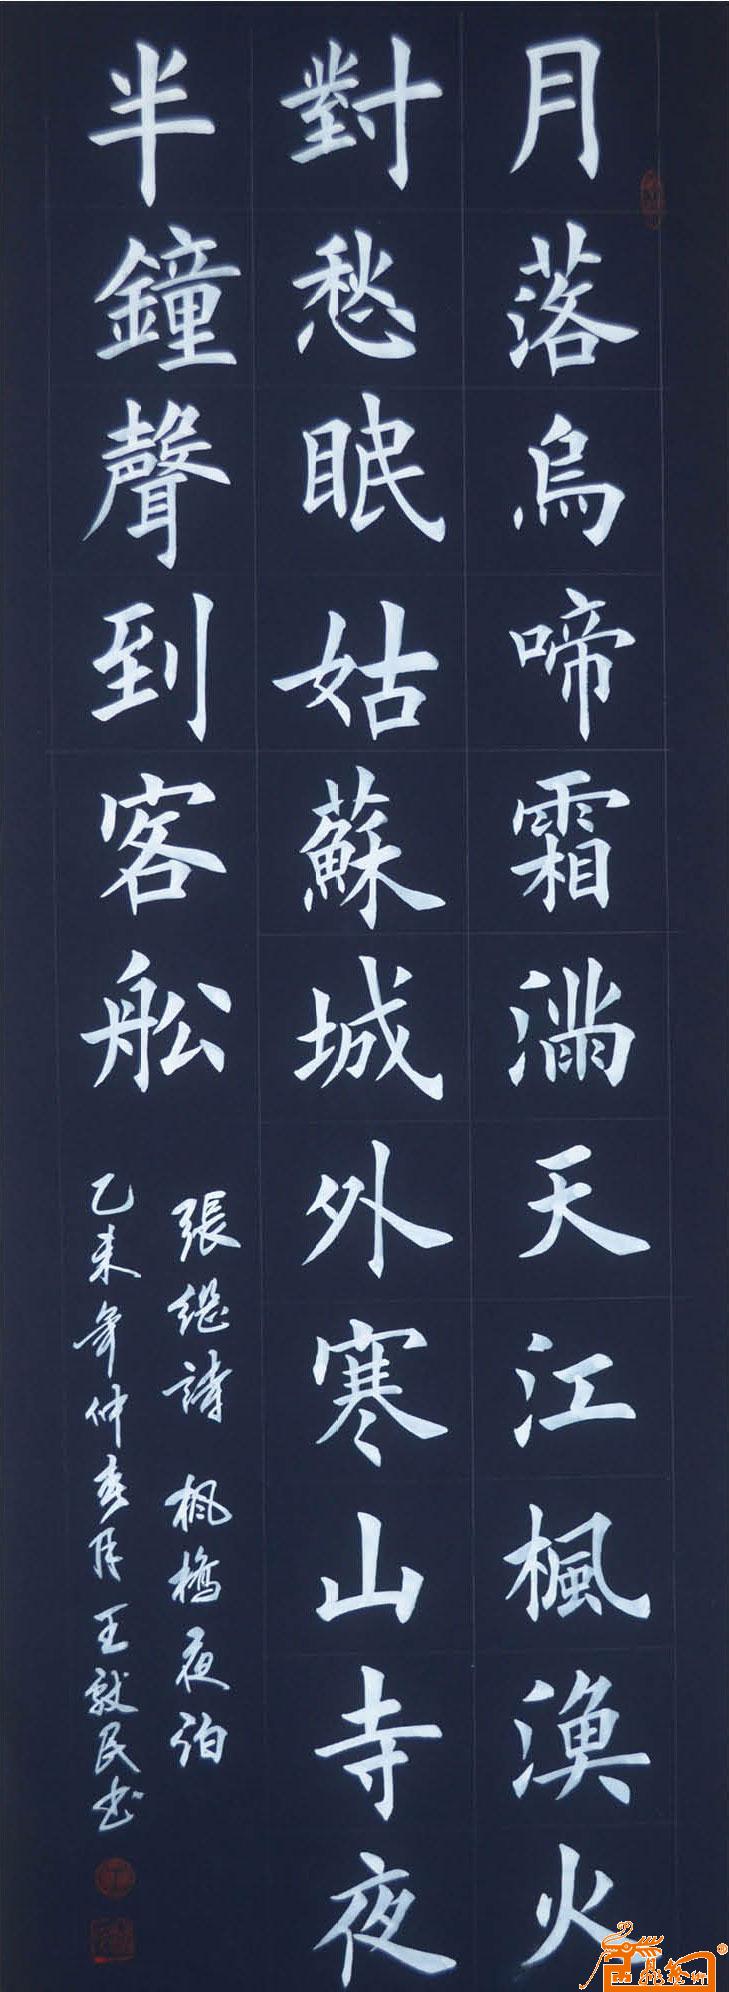 月落烏啼霜滿天江楓漁火
對愁眠姑蘇城外寒山寺夜
半鐘聲到客舩
張继詩 楓橋夜泊
乙未年仲春月王献民书